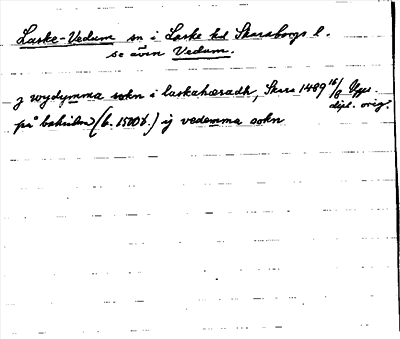 Laske-Vedum sn i Laske hd Skaraborgs l.
se även Vedum.
j wydymma sokn i laskahæradh, Skara 1489 16/8
dipl. orig.
på baksidan (b. 1500t.) ij vedemma sokn